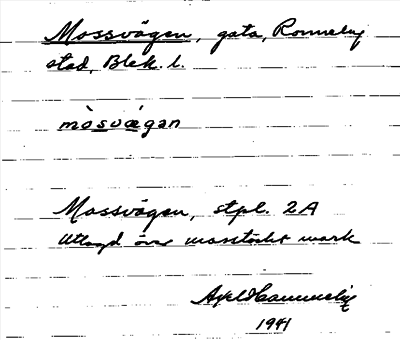 Mossvägen, gata, Ronneby
stad, Blek. l.
mòsvägan
Mossvägen, stpl. 2A
Utlagd över mosstäckt mark
1941